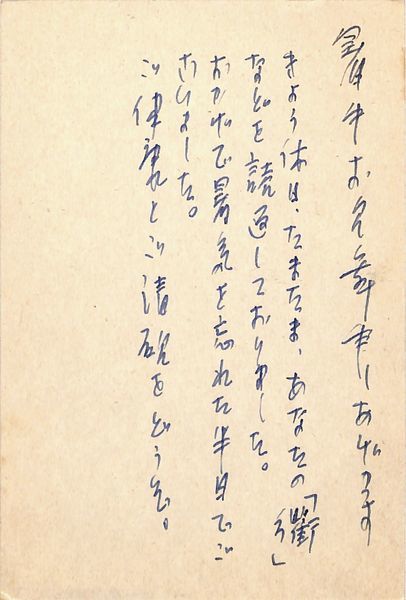 暑中お見舞申しあげます
きょう休日、たまたま、あなたの「衢」
などを読返しておりました。
おかげで暑気を忘れた半日でご
ざいました。
ご健康とご清硯をどうぞ。